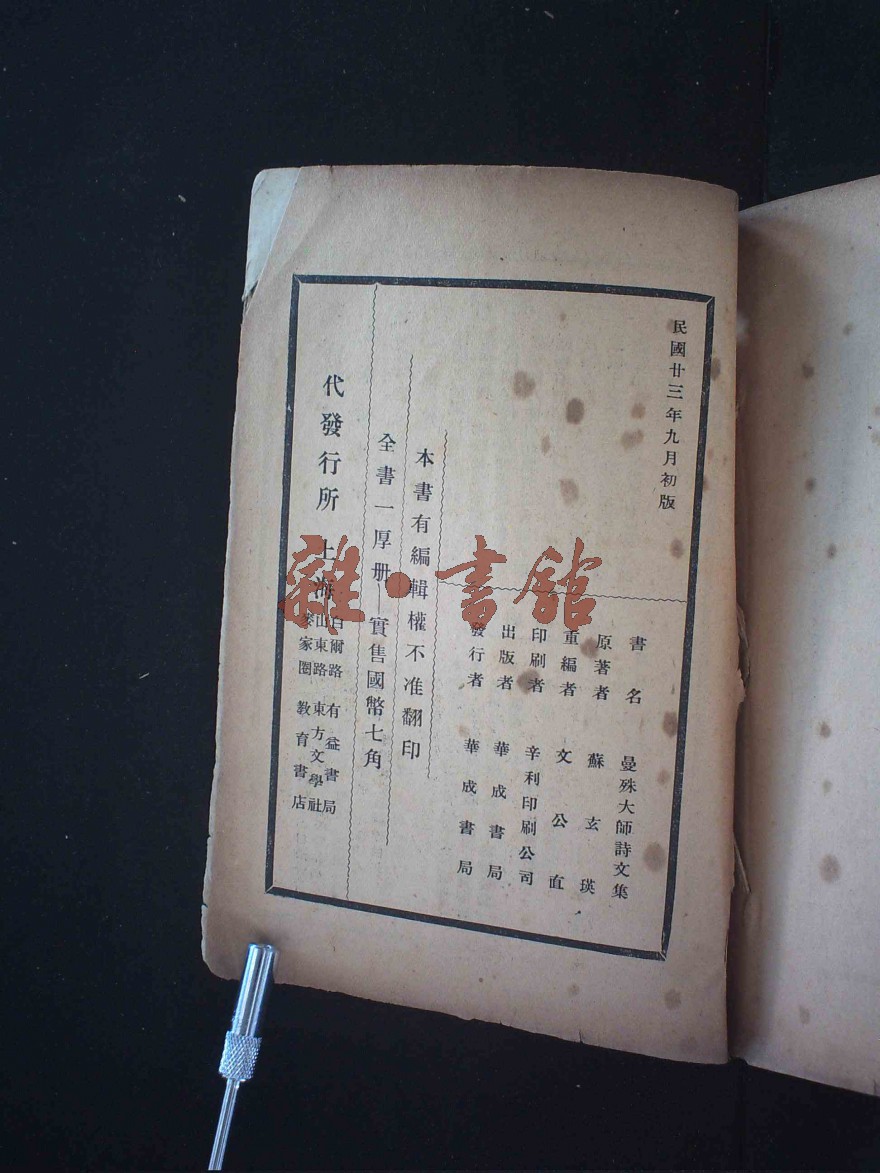 民國廿三年九月初版
書名 曼殊大師詩文集
原著者 蘇玄瑛
重編者 文公直
印刷者 辛利印刷公司
出版者 華成書局
發行者 華成書局
本書有編輯權不准翻印
全書一厚册—實售國幣七角
代發行所 上海
白爾路 有益書局
山東路 東方文學社
麥家圈 教育書店
雜·書館